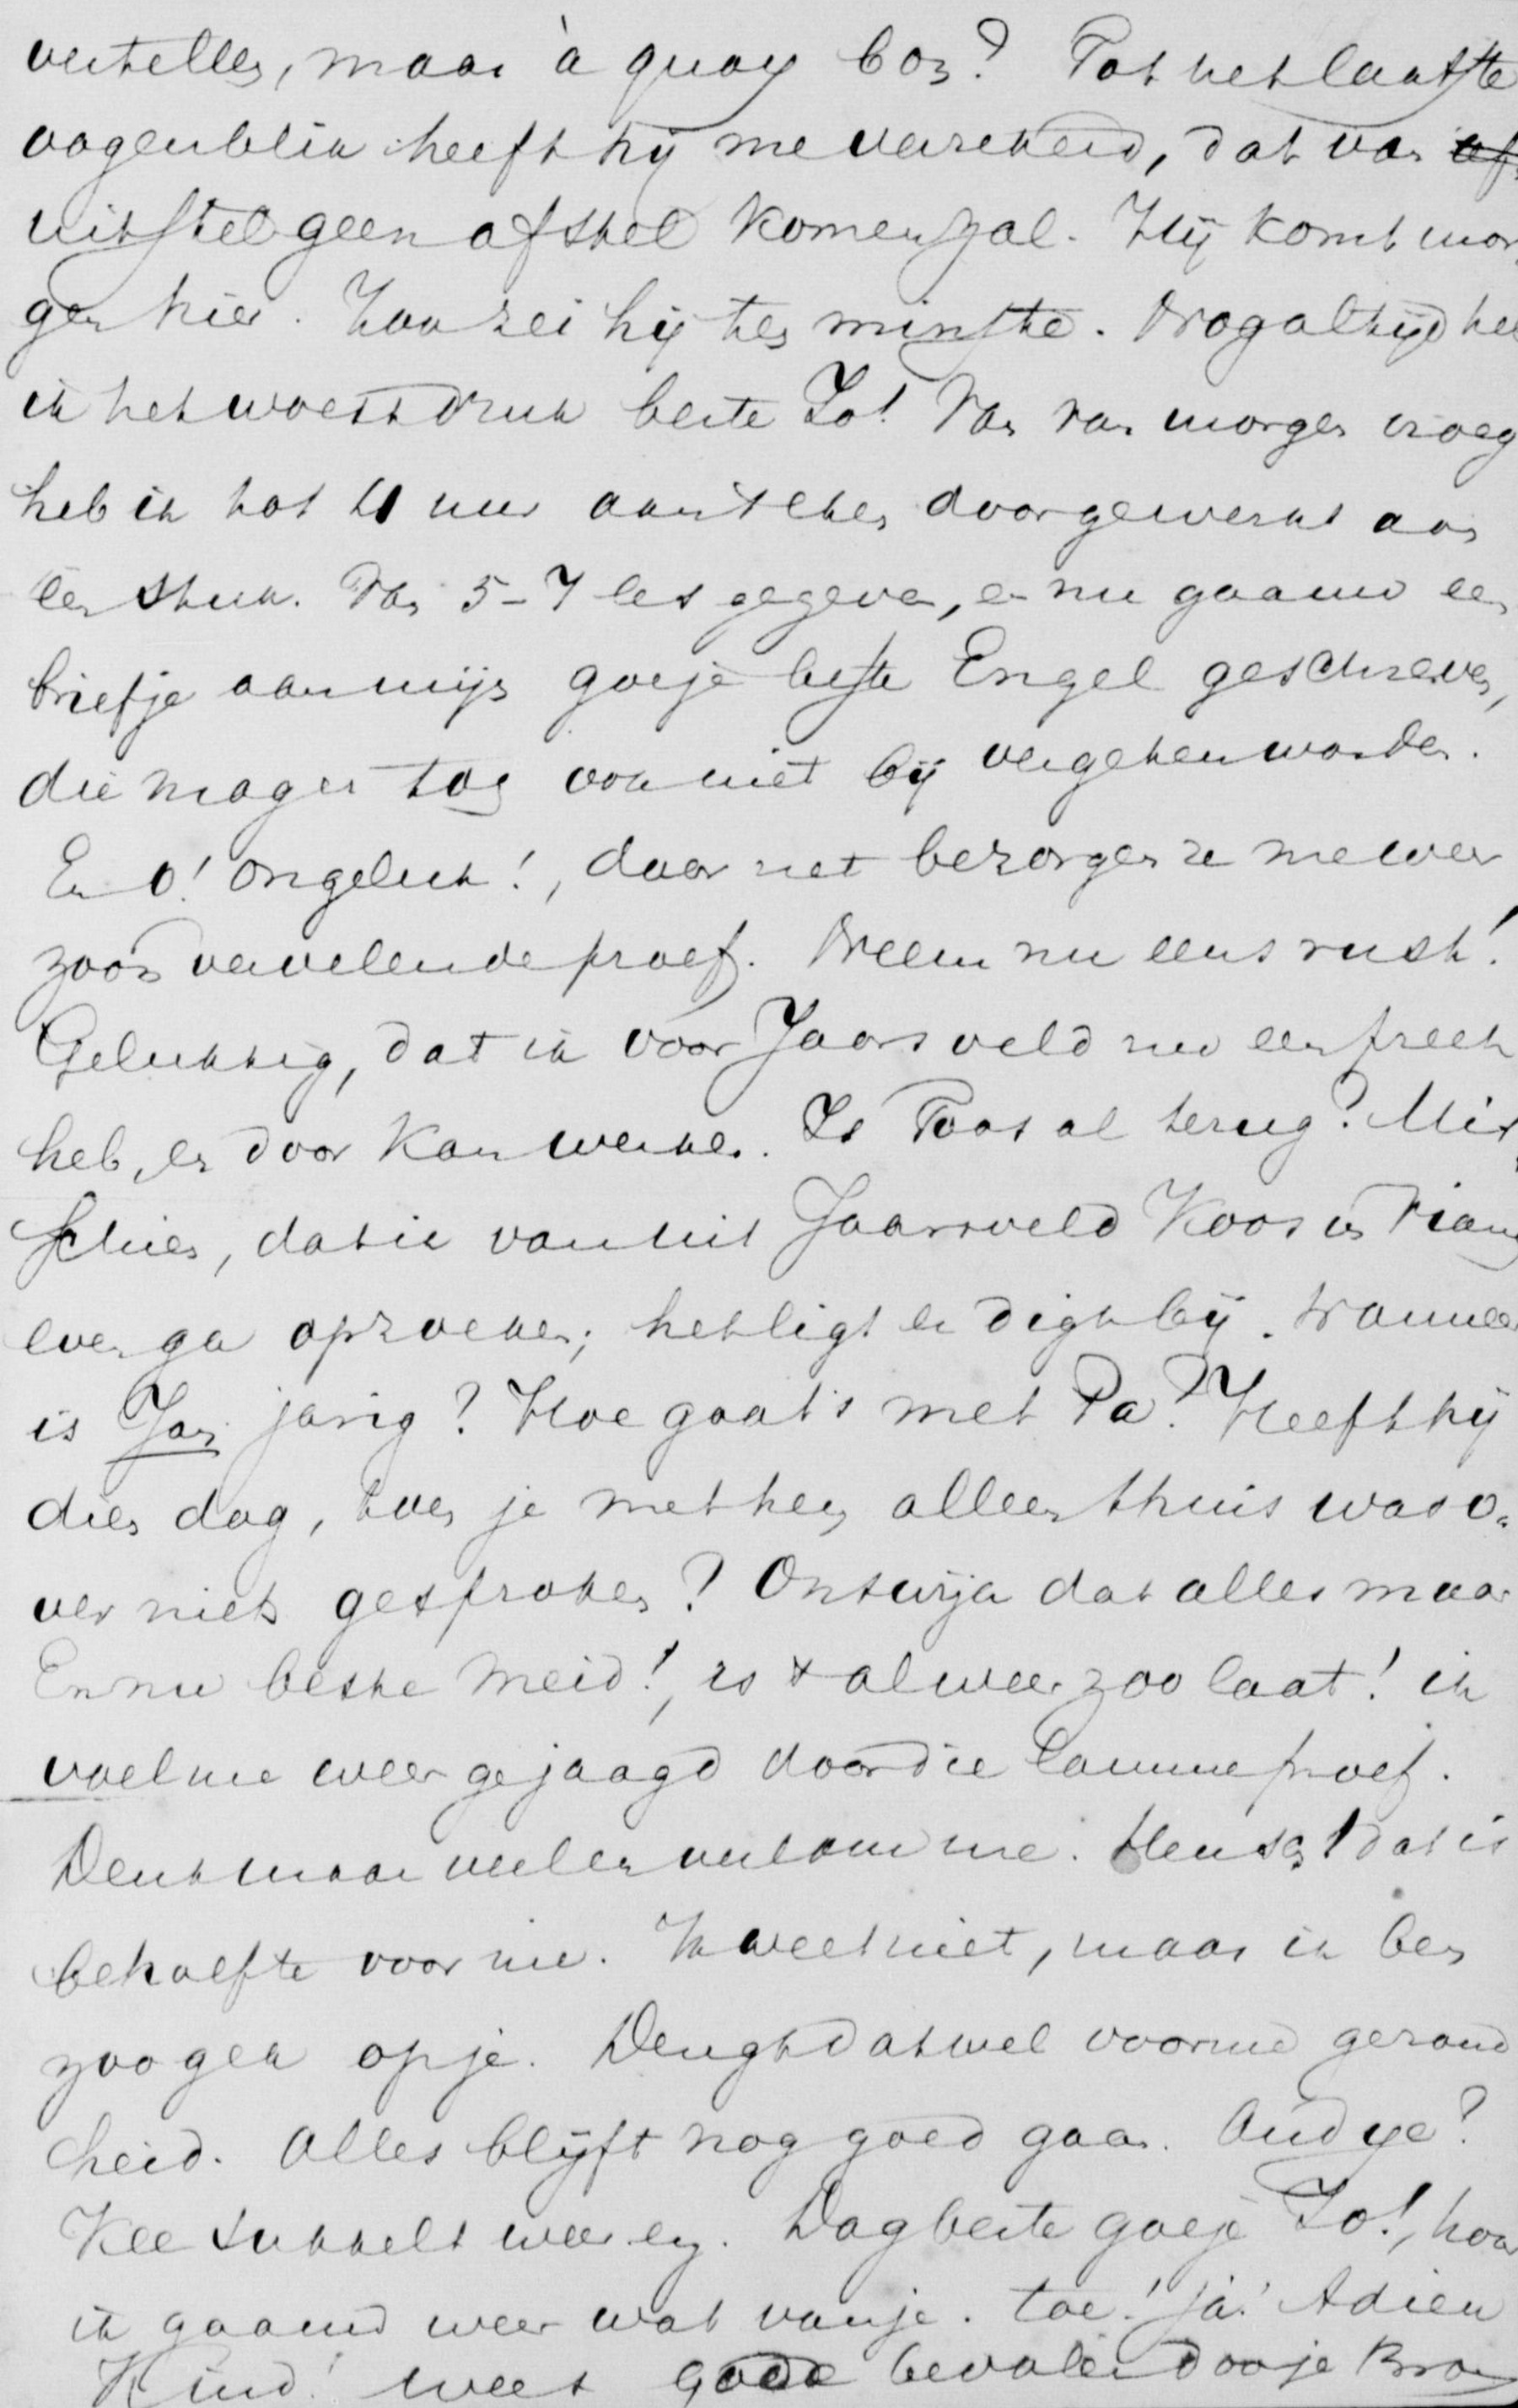 vertellen, maar à quoy bon? Tot het laatste
oogenblik heeft hij me verzekerd, dat van
uitstel geen afstel komen zal. Hij komt mor
gen hier. Zoo zei hij ten minste. Nog altijd heb
ik het woest druk beste Jo! Van van morgen vroeg
heb ik tot 4 uur aan 't eten doorgewerkt aan
een stuk. Van 5-7 les gegeven, en nu gaauw een
briefje aan mijn goeje beste Engel geschreven,
die mager tog ook niet bij vergeten worden.
En o! ongeluk!, daar net bezorgen ze me weer
zoo'n vervelende proef. Neem nu eens rust!
Gelukkig, dat ik voor Jaarsveld nu een preek
heb, en door kan werken. Is Toos al terug? Mis
schien, dat ik van uit Jaarsveld Koos en
even ga opzoeken; het ligt er digt bij. Wanneer
is Jan jarig? Hoe gaat's met Pa? Heeft hij
dien dag, toen je met hem alleen thuis was o=
ver niets gesproken? Ontwija dat alles maar
En nu beste meid!, is 't al weer zoo laat! ik
voel me weer gejaagd door die lamme proef.
Denk maar veel en veel om me. Heusch dat is
behoefte voor me. Ik weet niet, maar ik ben
zoo gek op je. Deugt dat wel voor me gezond
heid. Alles blijft nog goed gaan. And ye?
Kee sukkelt weer erg. Dag beste goeje Jo!, hoor
ik gaauw weer wat van je. toe! ja! Adieu
Kind! wees Gode bevolen door je Bram